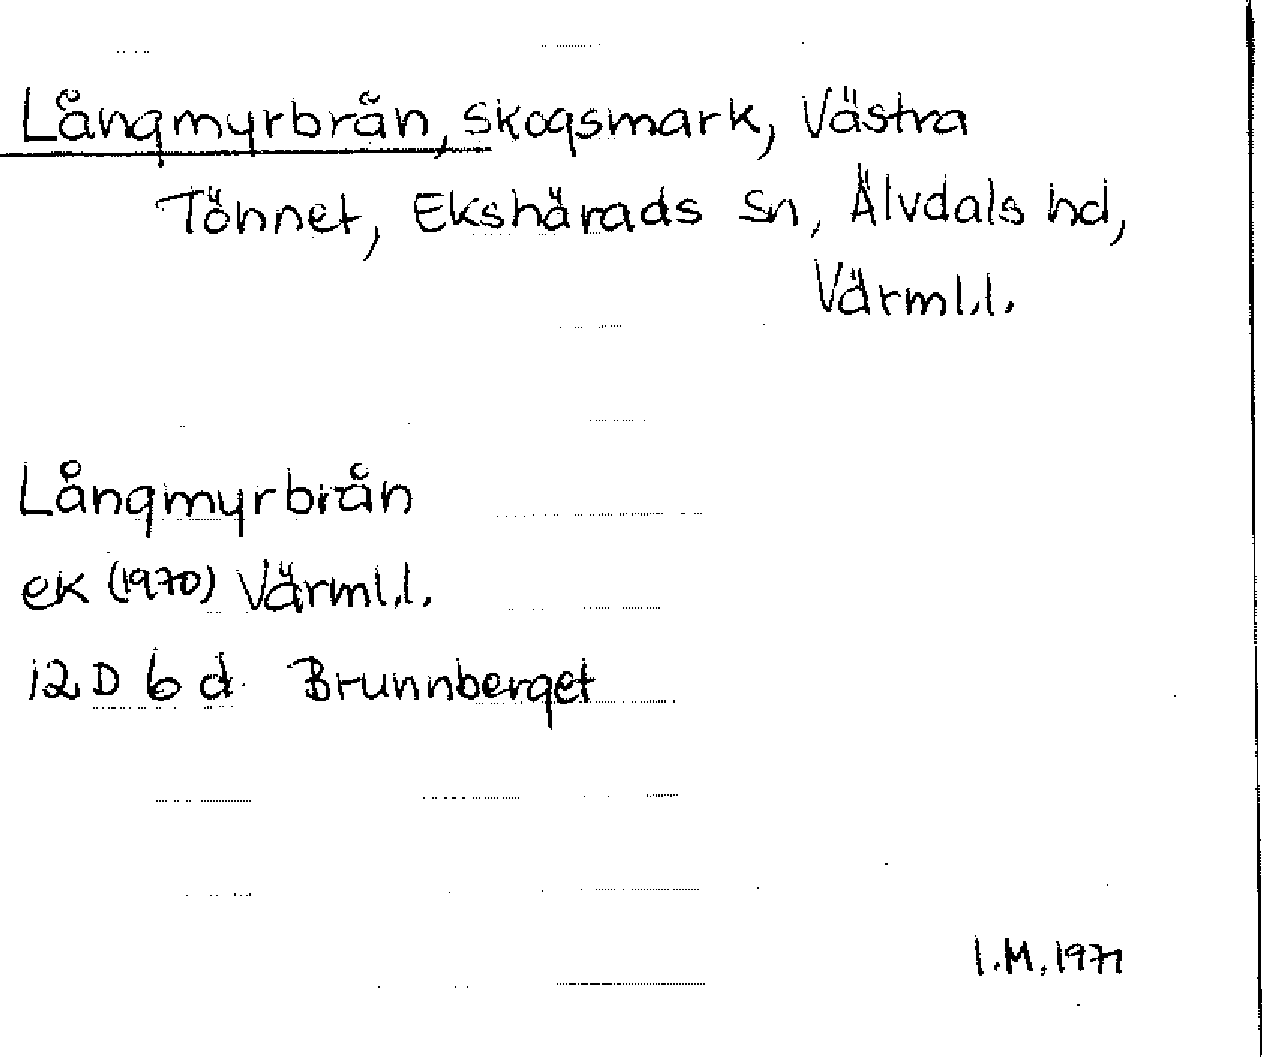 Långmyrbrån, skogsmark, Västra
Tönnet, Ekshärads sn, Älvdals hd,
Värml.l.
Långmyrbrån
ek (1970) Värml.l.
12D 6 d. Brunnberget
I.M. 1971